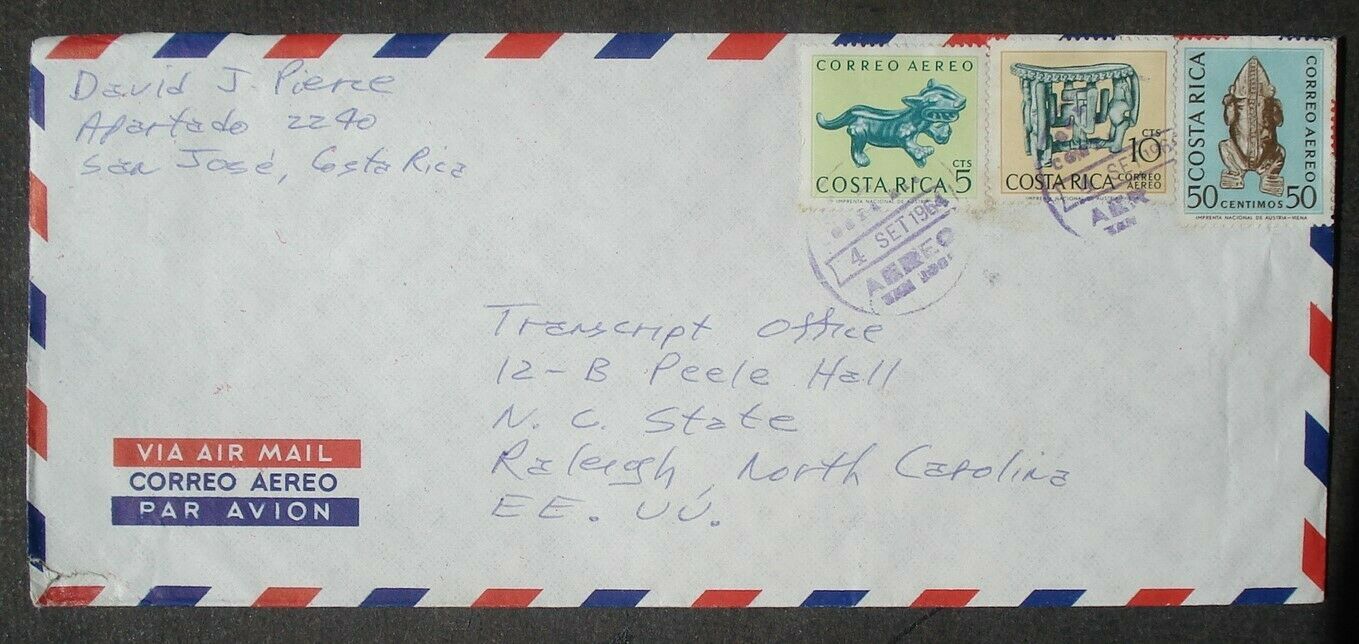 David J. Pierce
Apartado 2240
San José, Costa Rica
CORREO AEREO
CTS
COSTA RICA 5
IMPRENTA NACIONAL DE AUSTRIA
CTS
10
COSTA RICA CORREO AEREO
IMPRENTA NACIONAL DE AUSTRIA
COSTA RICA
CORREO AEREO
50 CENTIMOS 50
IMPRENTA NACIONAL DE AUSTRIA-VIENA
4 SET 1964
AEREO
SAN JOSE
SET 1964
AER
SAN
Transcript Office
12-B Peele Hall
N. C. State
Raleigh, North Carolina
EE. UU.
VIA AIR MAIL
CORREO AEREO
PAR AVION